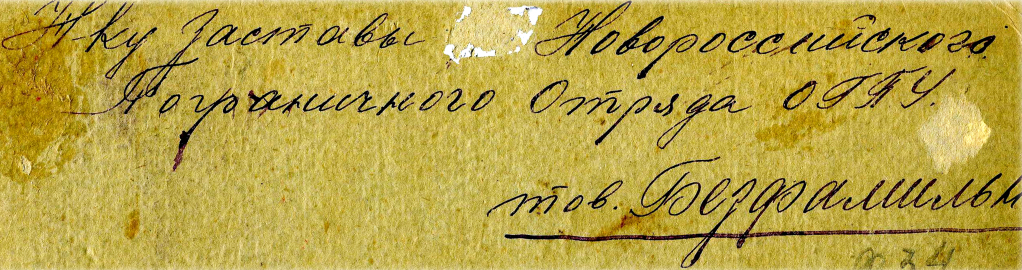 Н-ку заставы Новороссийского
Пограничного Отряда ОГПУ.
тов. Безфамильн